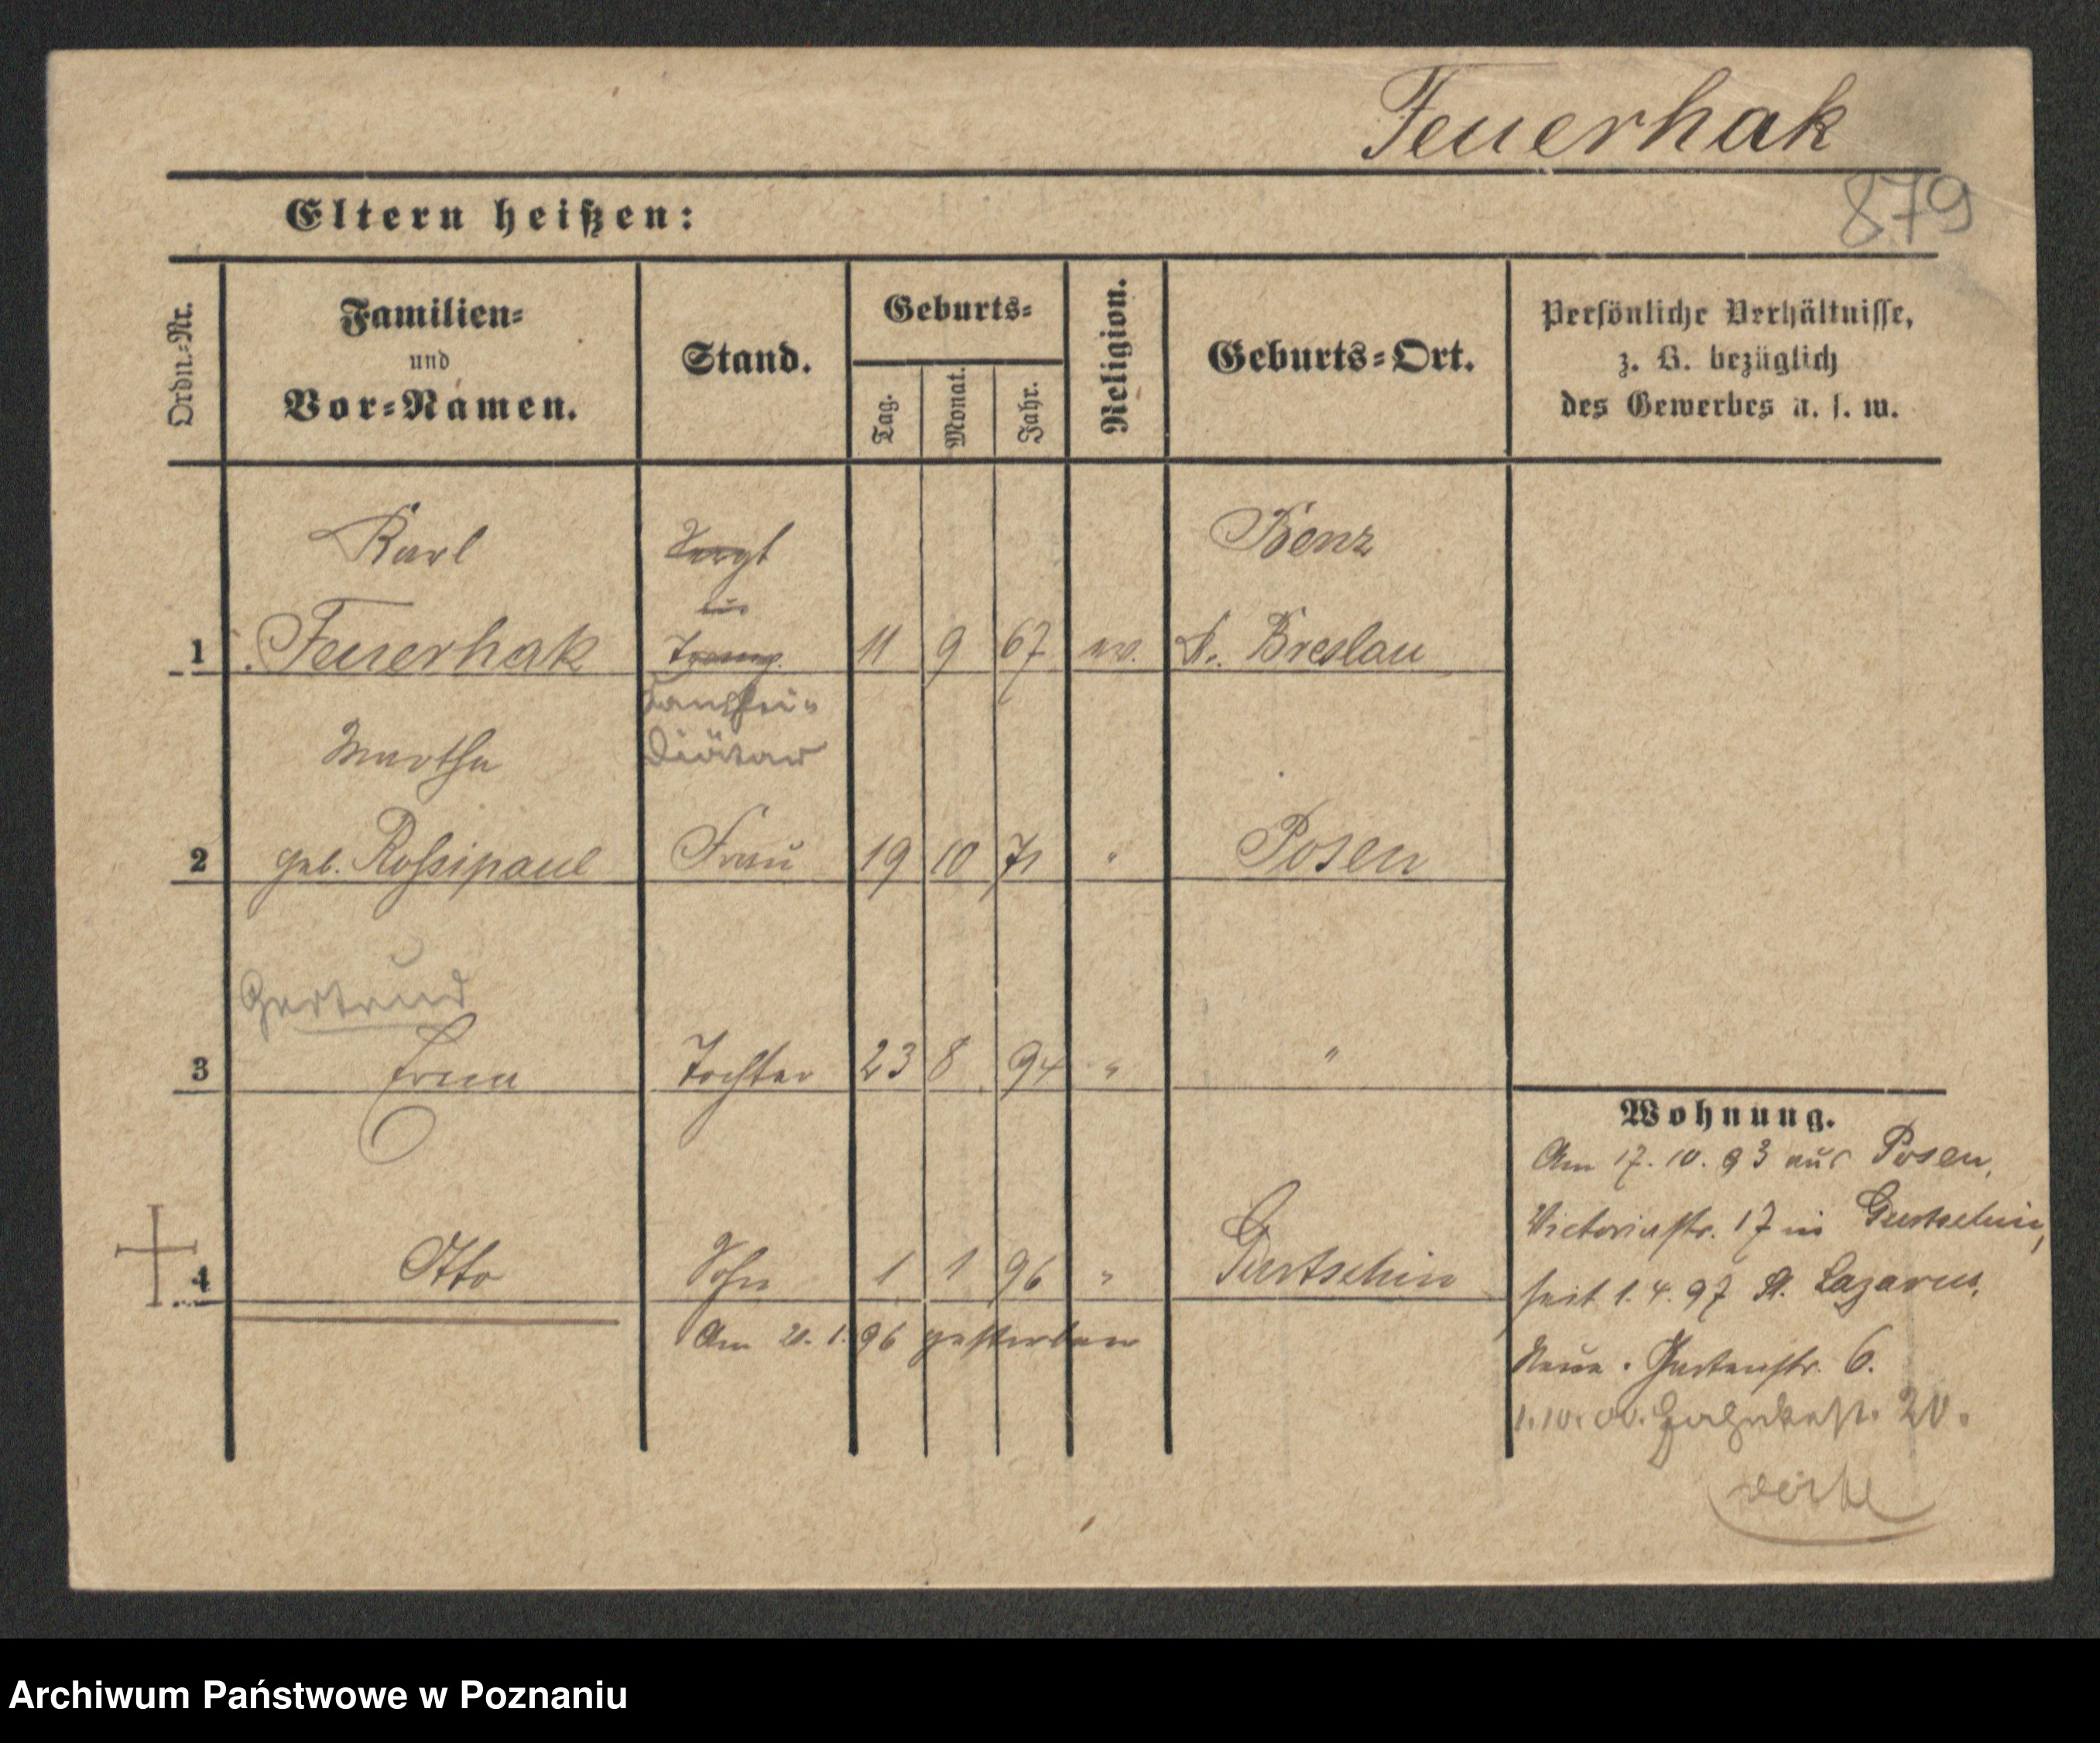 Feuerhak
879
Eltern heißen:
Ordn.-Nr.
Familien-
und
Vor-Namen.
Stand.
Geburts-
Tag.
Monat.
Jahr.
Religion.
Geburts-Ort.
Persönliche Verhältnisse,
z. B. bezüglich
des Gewerbes u. s. w.
Karl
1 Feuerhak 11 9 67 ev. Kr. Breslau
Kanzlei-
Diätar
Martha
2 geb. Rossipaul Frau 19 10 71 " Posen
Gertrud
3 Erna Tochter 23 8 94 " "
4 Otto Sohn 1 1 96 " Gurtschin
Am 20. 1. 96 gestorben
Wohnung.
Am 17. 10. 93 aus Posen,
Victoriastr. 17 in Gurtschin,
seit 1. 4. 97 St. Lazarus,
Neue Gartenstr. 6.
1. 10. 00. 20.
Archiwum Państwowe w Poznaniu